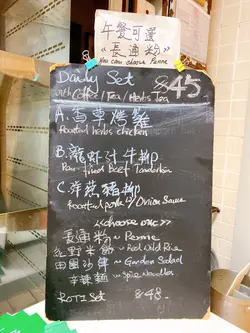 午餐可選
《長通粉》
You can choose Penne
Daily Set $45
with Coffee / Tea / Herbs Tea
A. 香草烤雞
Roasted herbs chicken
B. 龍蝦汁牛柳
Pan-fried Beef Tenderloin
C. 洋葱豬柳
Roasted pork w/ Onion Sauce
<<choose one>>
長通粉 ~ Penne
紅野米飯 ~ Red Wild Rice
田園沙律 ~ Garden Salad
辛辣麵 ~ Spicy Noodles
ROTI Set $48.